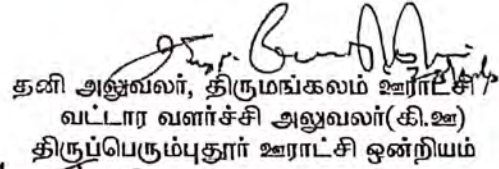 தனி அலுவலர், திருமங்கலம் ஊராட்சி
வட்டார வளர்ச்சி அலுவலர்(கி.ஊ)
திருப்பெரும்புதூர் ஊராட்சி ஒன்றியம்